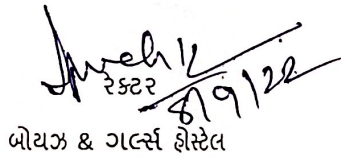 રેક્ટર
8/9/22
બોયઝ & ગર્લ્સ હોસ્ટેલ